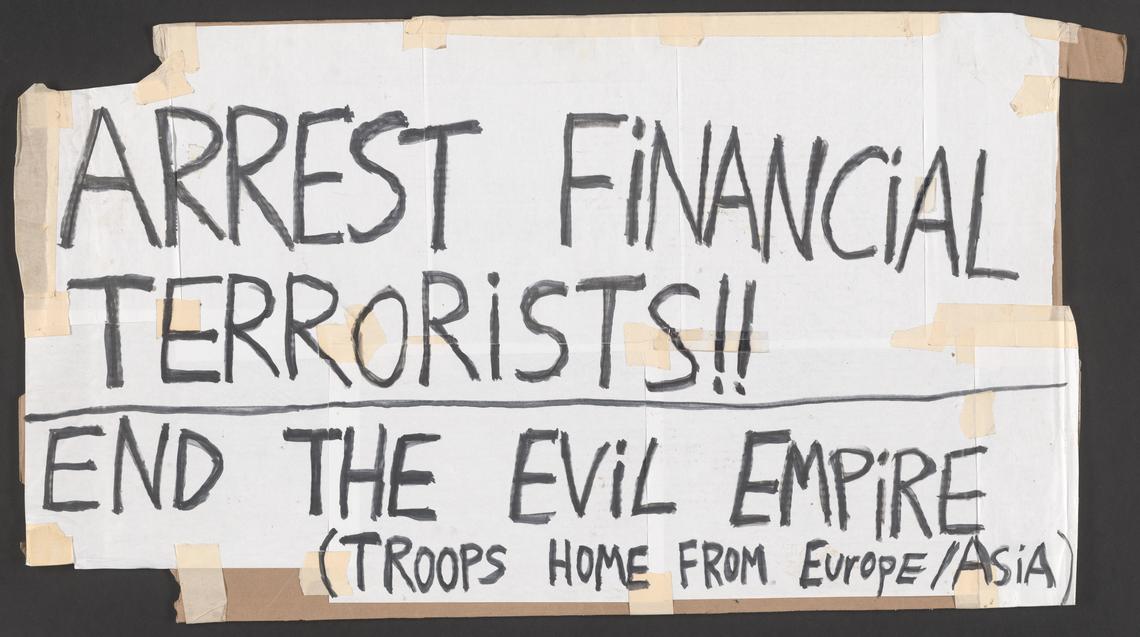 ARREST FiNANCiAL
TERRORiSTS!!
END THE EViL EMPiRE
(TROOPS HOME FROM EuropE/ASiA)